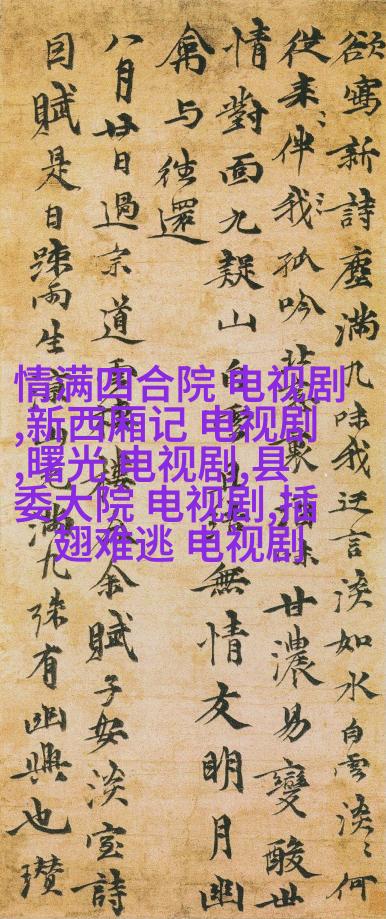 欲寫新詩塵滿几味我迂言淡如水白雲淡〻何
從來〻伴我〻孤吟裏甘濃易變酸世
情對面九疑山白雲無情友明月幽
禽与往還
八月廿日過宗道樓余賦子安淡室詩
因賦是日疎雨生滿几殊有幽興也瓚
情满四合院 电视剧
,新西厢记 电视剧
,曙光 电视剧,县
委大院 电视剧,插
翅难逃 电视剧